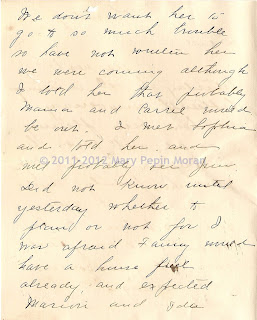 We don't want her to
go to so much trouble
so have not written her
we were coming although
I told her that probably
Mama and Carrie would
be out. I met Sophia
and told her and
© 2011-2012 Mary Pepin Moran
we
Did not know until
yesterday whether to
plan or not for I
was afraid Fanny would
have a house full
already and expected
Marion and Ida